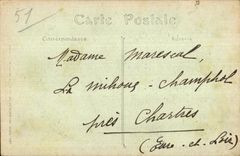 51
Carte Postale
Correspondance
Madame Marescal,
La mihoue - Champhol
près Chartres
(Eure-et-Loir)